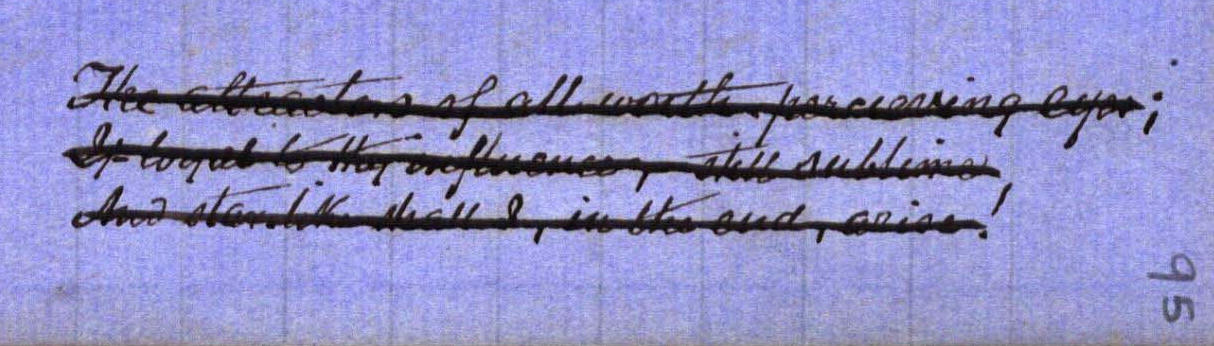 The attracters of all worth-perceiving eyes;
If loyal to thy influence, still sublime,
And starlike shall I, in the end, arise!
95